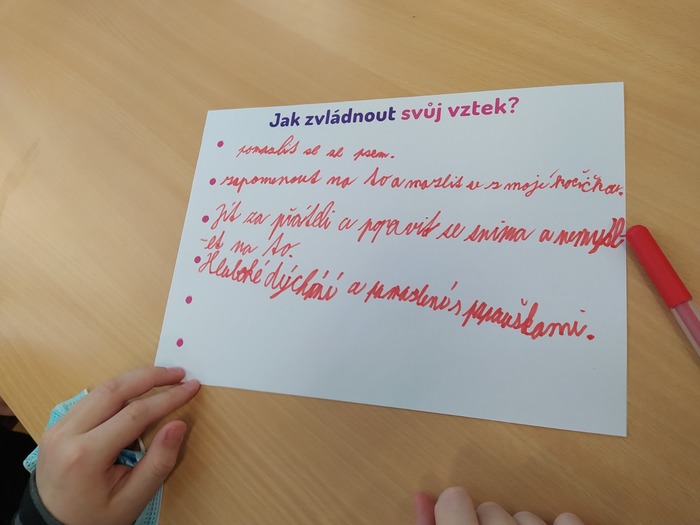 Jak zvládnout svůj vztek?
pomazlit se se psem.
zapomenout na to a mazlit se s mojí kočičkou.
Jít za přáteli a popravit se snima a nemyšl
-et na to.
Hluboké dýchání a pamazlení s papouškami.